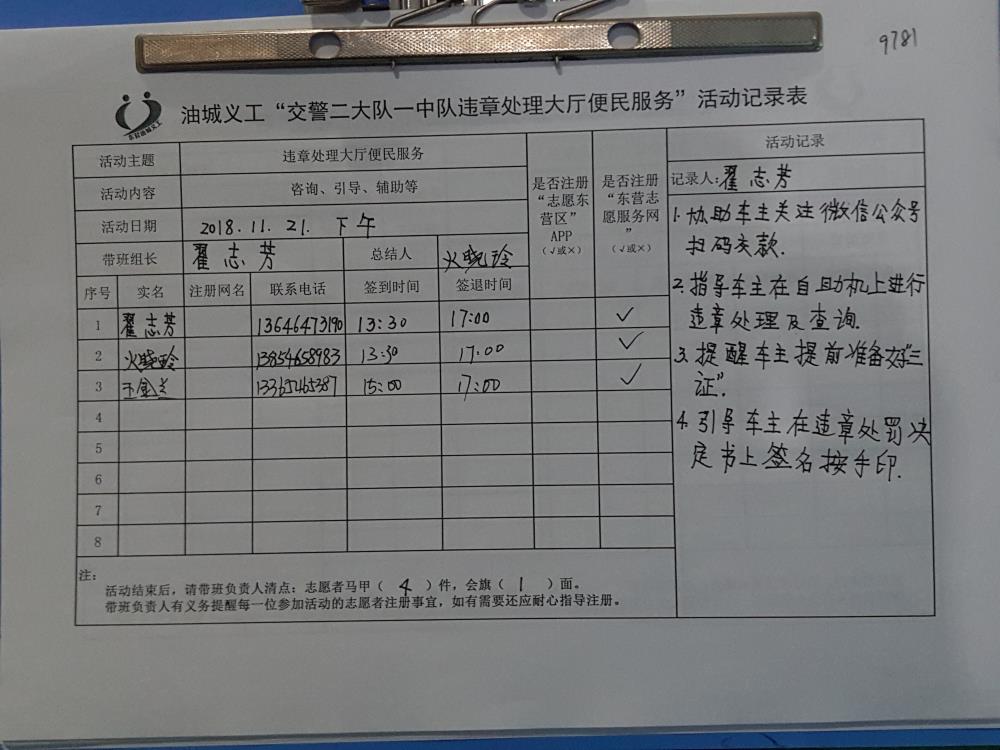 9781
油城义工“交警二大队一中队违章处理大厅便民服务”活动记录表
东营油城义工
活动主题 违章处理大厅便民服务
活动内容 咨询、引导、辅助等
活动日期 2018.11.21. 下午
带班组长 翟志芳 总结人 火晓玲
序号 实名 注册网名 联系电话 签到时间 签退时间
是否注册
“志愿东
营区”
APP
(√或×)
是否注册
“东营志
愿服务网
”
(√或×)
1 翟志芳 13646473190 13:30 17:00 ✓
2 火晓玲 13854658983 13:30 17:00 ✓
3 王金兰 13365465387 15:00 17:00 ✓
4
5
6
7
8
活动记录
记录人:翟志芳
1.协助车主关注微信公众号
扫码交款.
2.指导车主在自助机上进行
违章处理及查询.
3.提醒车主提前准备好“三
证”.
4.引导车主在违章处罚决
定书上签名按手印.
注:
活动结束后，请带班负责人清点：志愿者马甲（ 4 ）件，会旗（ 1 ）面。
带班负责人有义务提醒每一位参加活动的志愿者注册事宜，如有需要还应耐心指导注册。